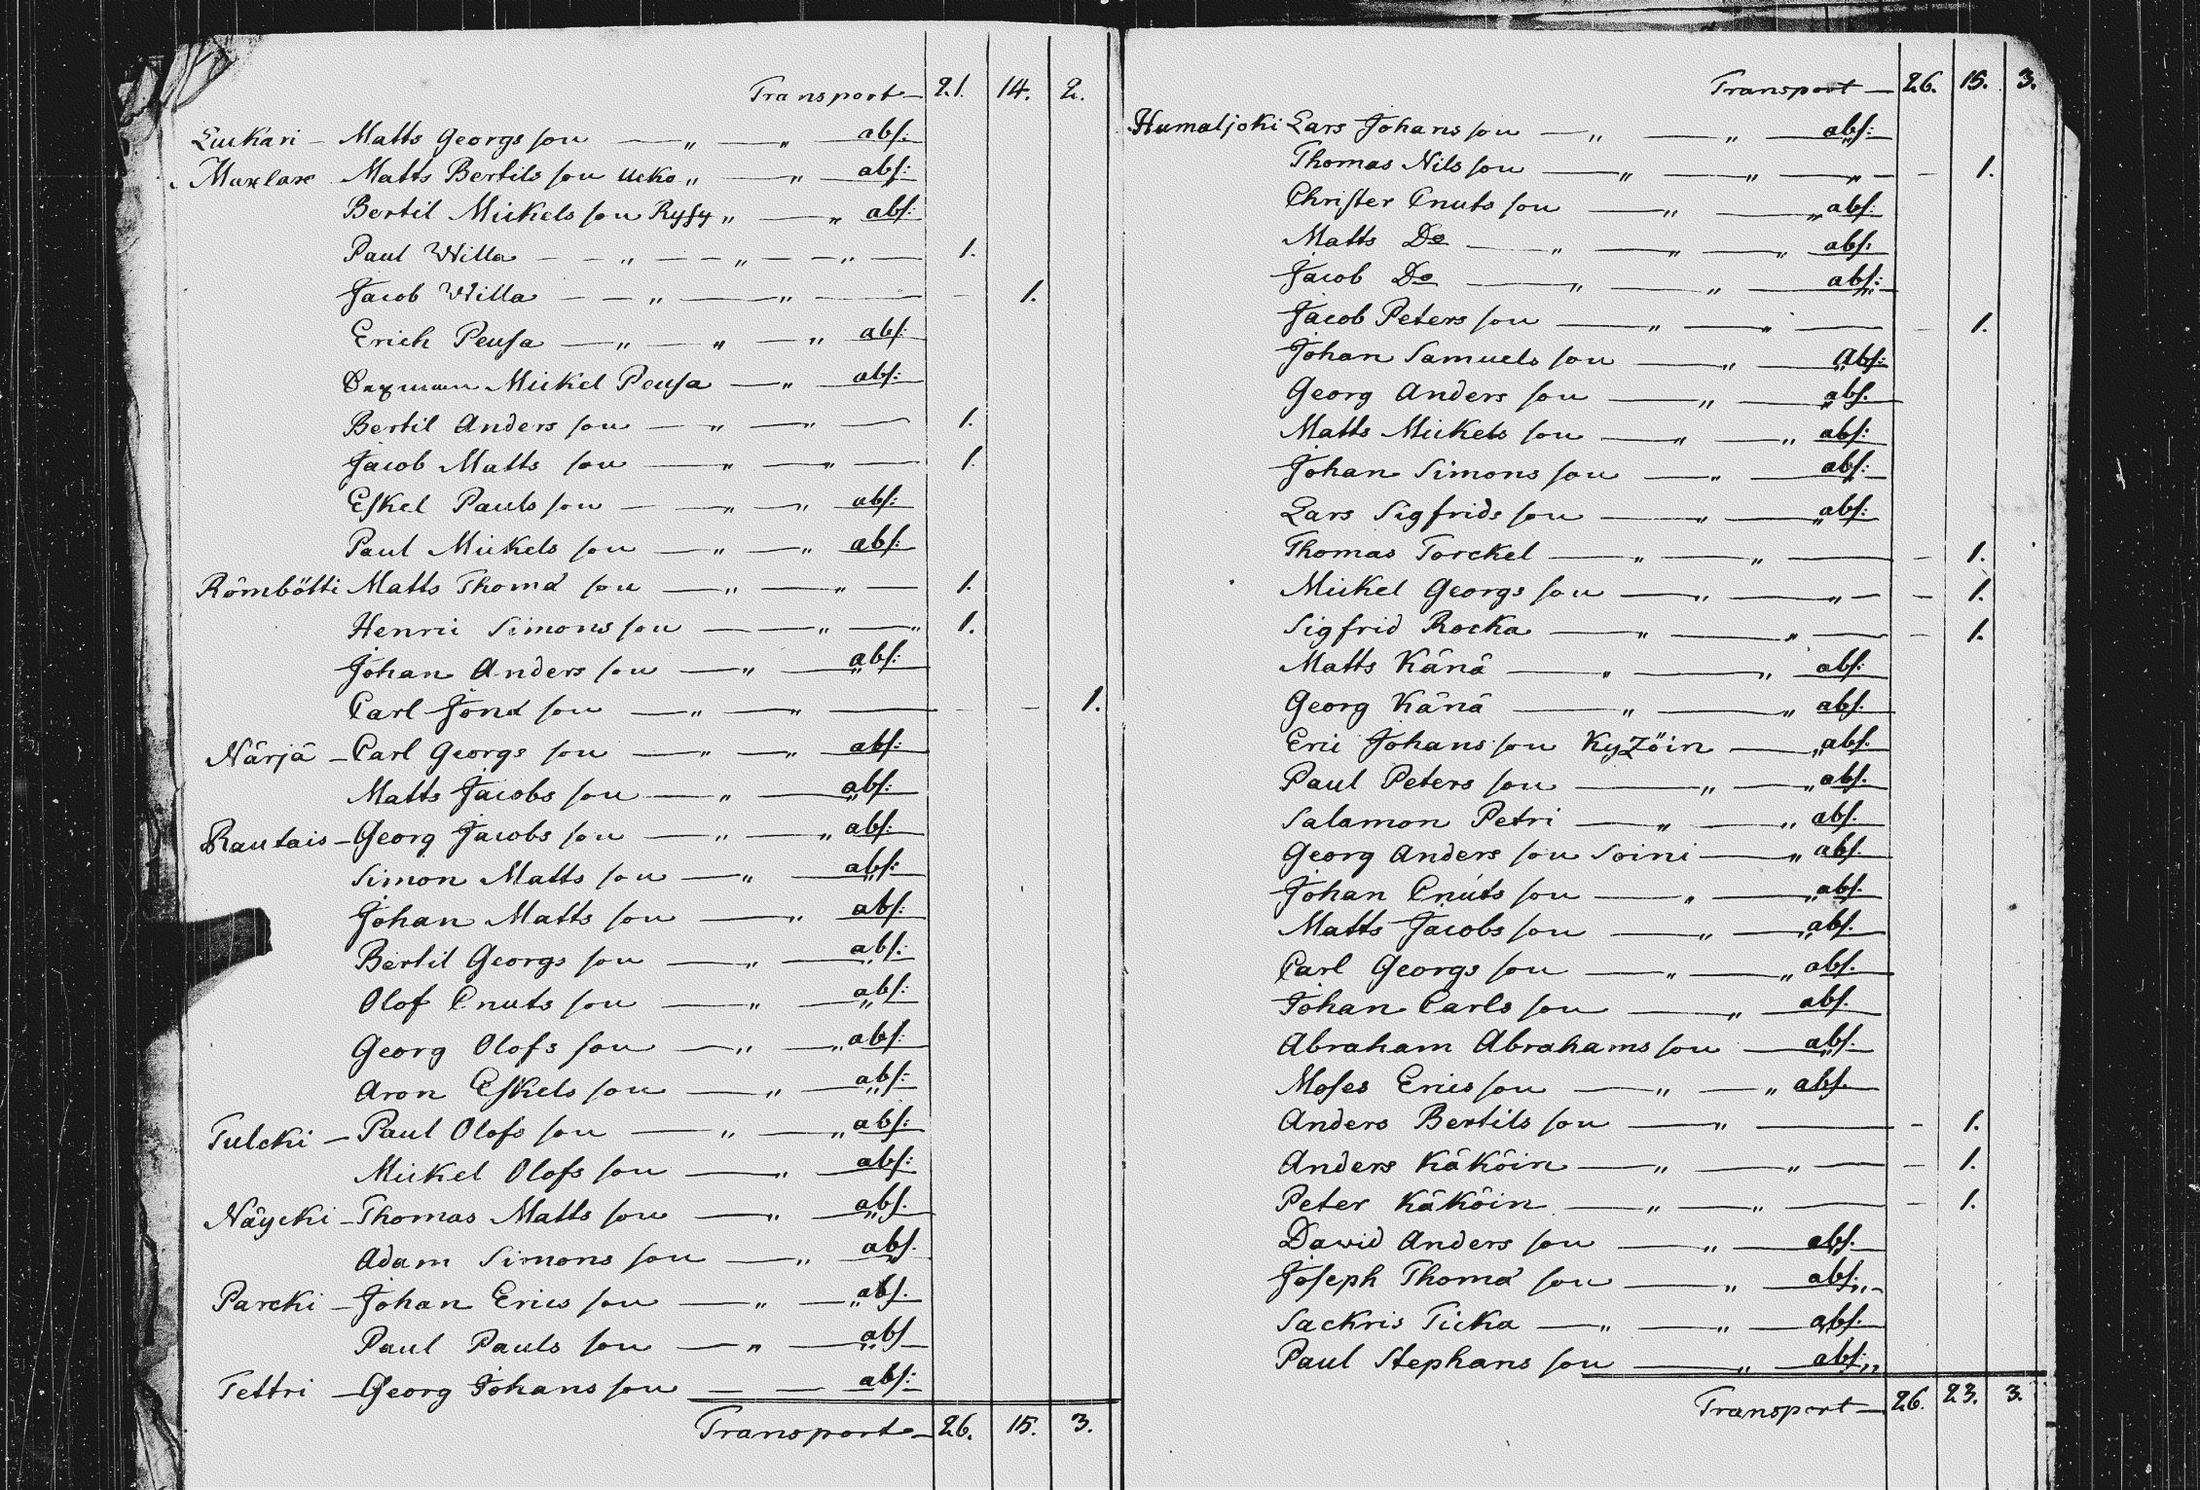 Transport — 21. 14. 2.
Luckari — Matts Georgs son — „ — „ — abs:
Muxlax Matts Bertils son Ucko „ — „ abs:
Bertil Mickels son Rysy „ — „ abs:
Paul Willa — — „ — — „ — — „ — 1.
Jacob Willa — — „ — „ — 1.
Erich Peusa — „ — „ — „ abs:
Mickel Peusa — „ — abs:
Bertil Anders son — „ — „ — 1.
Jacob Matts son — „ — „ — 1.
Eskel Pauls son — „ — „ abs:
Paul Mickels son — „ — „ abs:
Römbötti Matts Thomæ son — „ — „ — 1.
Henric Simons son — „ — „ 1.
Johan Anders son — „ — abs:
Carl Jonæ son — „ — „ — 1.
Närjä — Carl Georgs son — „ — „ abs:
Matts Jacobs son — „ — abs:
Rautais — Georg Jacobs son — „ — „ abs:
Simon Matts son — „ — abs:
Johan Matts son — „ abs:
Bertil Georgs son — „ — abs:
Olof Cnuts son — „ — abs:
Georg Olofs son — „ — „ abs:
Aron Eskels son — „ — abs:
Tulcki — Paul Olofs son — „ — „ abs:
Mickel Olofs son — „ — abs:
Näycki — Thomas Matts son — „ — abs.
Adam Simons son — „ — abs.
Parcki — Johan Erics son — „ — „ abs.
Paul Pauls son — „ — abs
Tettri — Georg Johans son — — abs:
Transport — 26. 15. 3.
Transport — 26. 15. 3.
Humaljoki Lars Johans son — „ — „ — abs:
Thomas Nils son — „ — „ — „ — — 1.
Christer Cnuts son — „ — „ abs:
Matts Do — „ — „ — „ abs:
Jacob Do — „ — „ — abs:
Jacob Peters son — „ — „ — — 1.
Johan Samuels son — „ — Abs:
Georg Anders son — „ — abs.
Matts Mickels son — „ — „ abs:
Johan Simons son — „ — abs:
Lars Sigfrids son — „ — „ abs:
Thomas Torckel — „ — „ — — 1.
Mickel Georgs son — „ — „ — — 1.
Sigfrid Rocka — „ — „ — — 1.
Matts Känä — „ — „ abs:
Georg Känä — „ — „ abs.
Eric Johans son Kyzöin — „ abs.
Paul Peters son — „ — „ abs.
Salamon Petri — „ — „ abs.
Georg Anders son Soini — „ abs.
Johan Cnuts son — „ — „ abs.
Matts Jacobs son — „ — „ abs.
Carl Georgs son — „ — „ abs.
Johan Carls son — „ — abs.
Abraham Abrahams son — abs:
Moses Erics son — „ — „ abs.
Anders Bertils son — „ — — 1.
Anders Käköin — „ — „ — — 1.
Peter Käköin — „ — „ — — 1.
Dawid Anders son — „ — abs.
Joseph Thomæ son — „ — abs: „ -
Sackris Ticka — „ — „ — abs:
Paul Stephans son — „ — abs: „
Transport — 26. 23. 3.